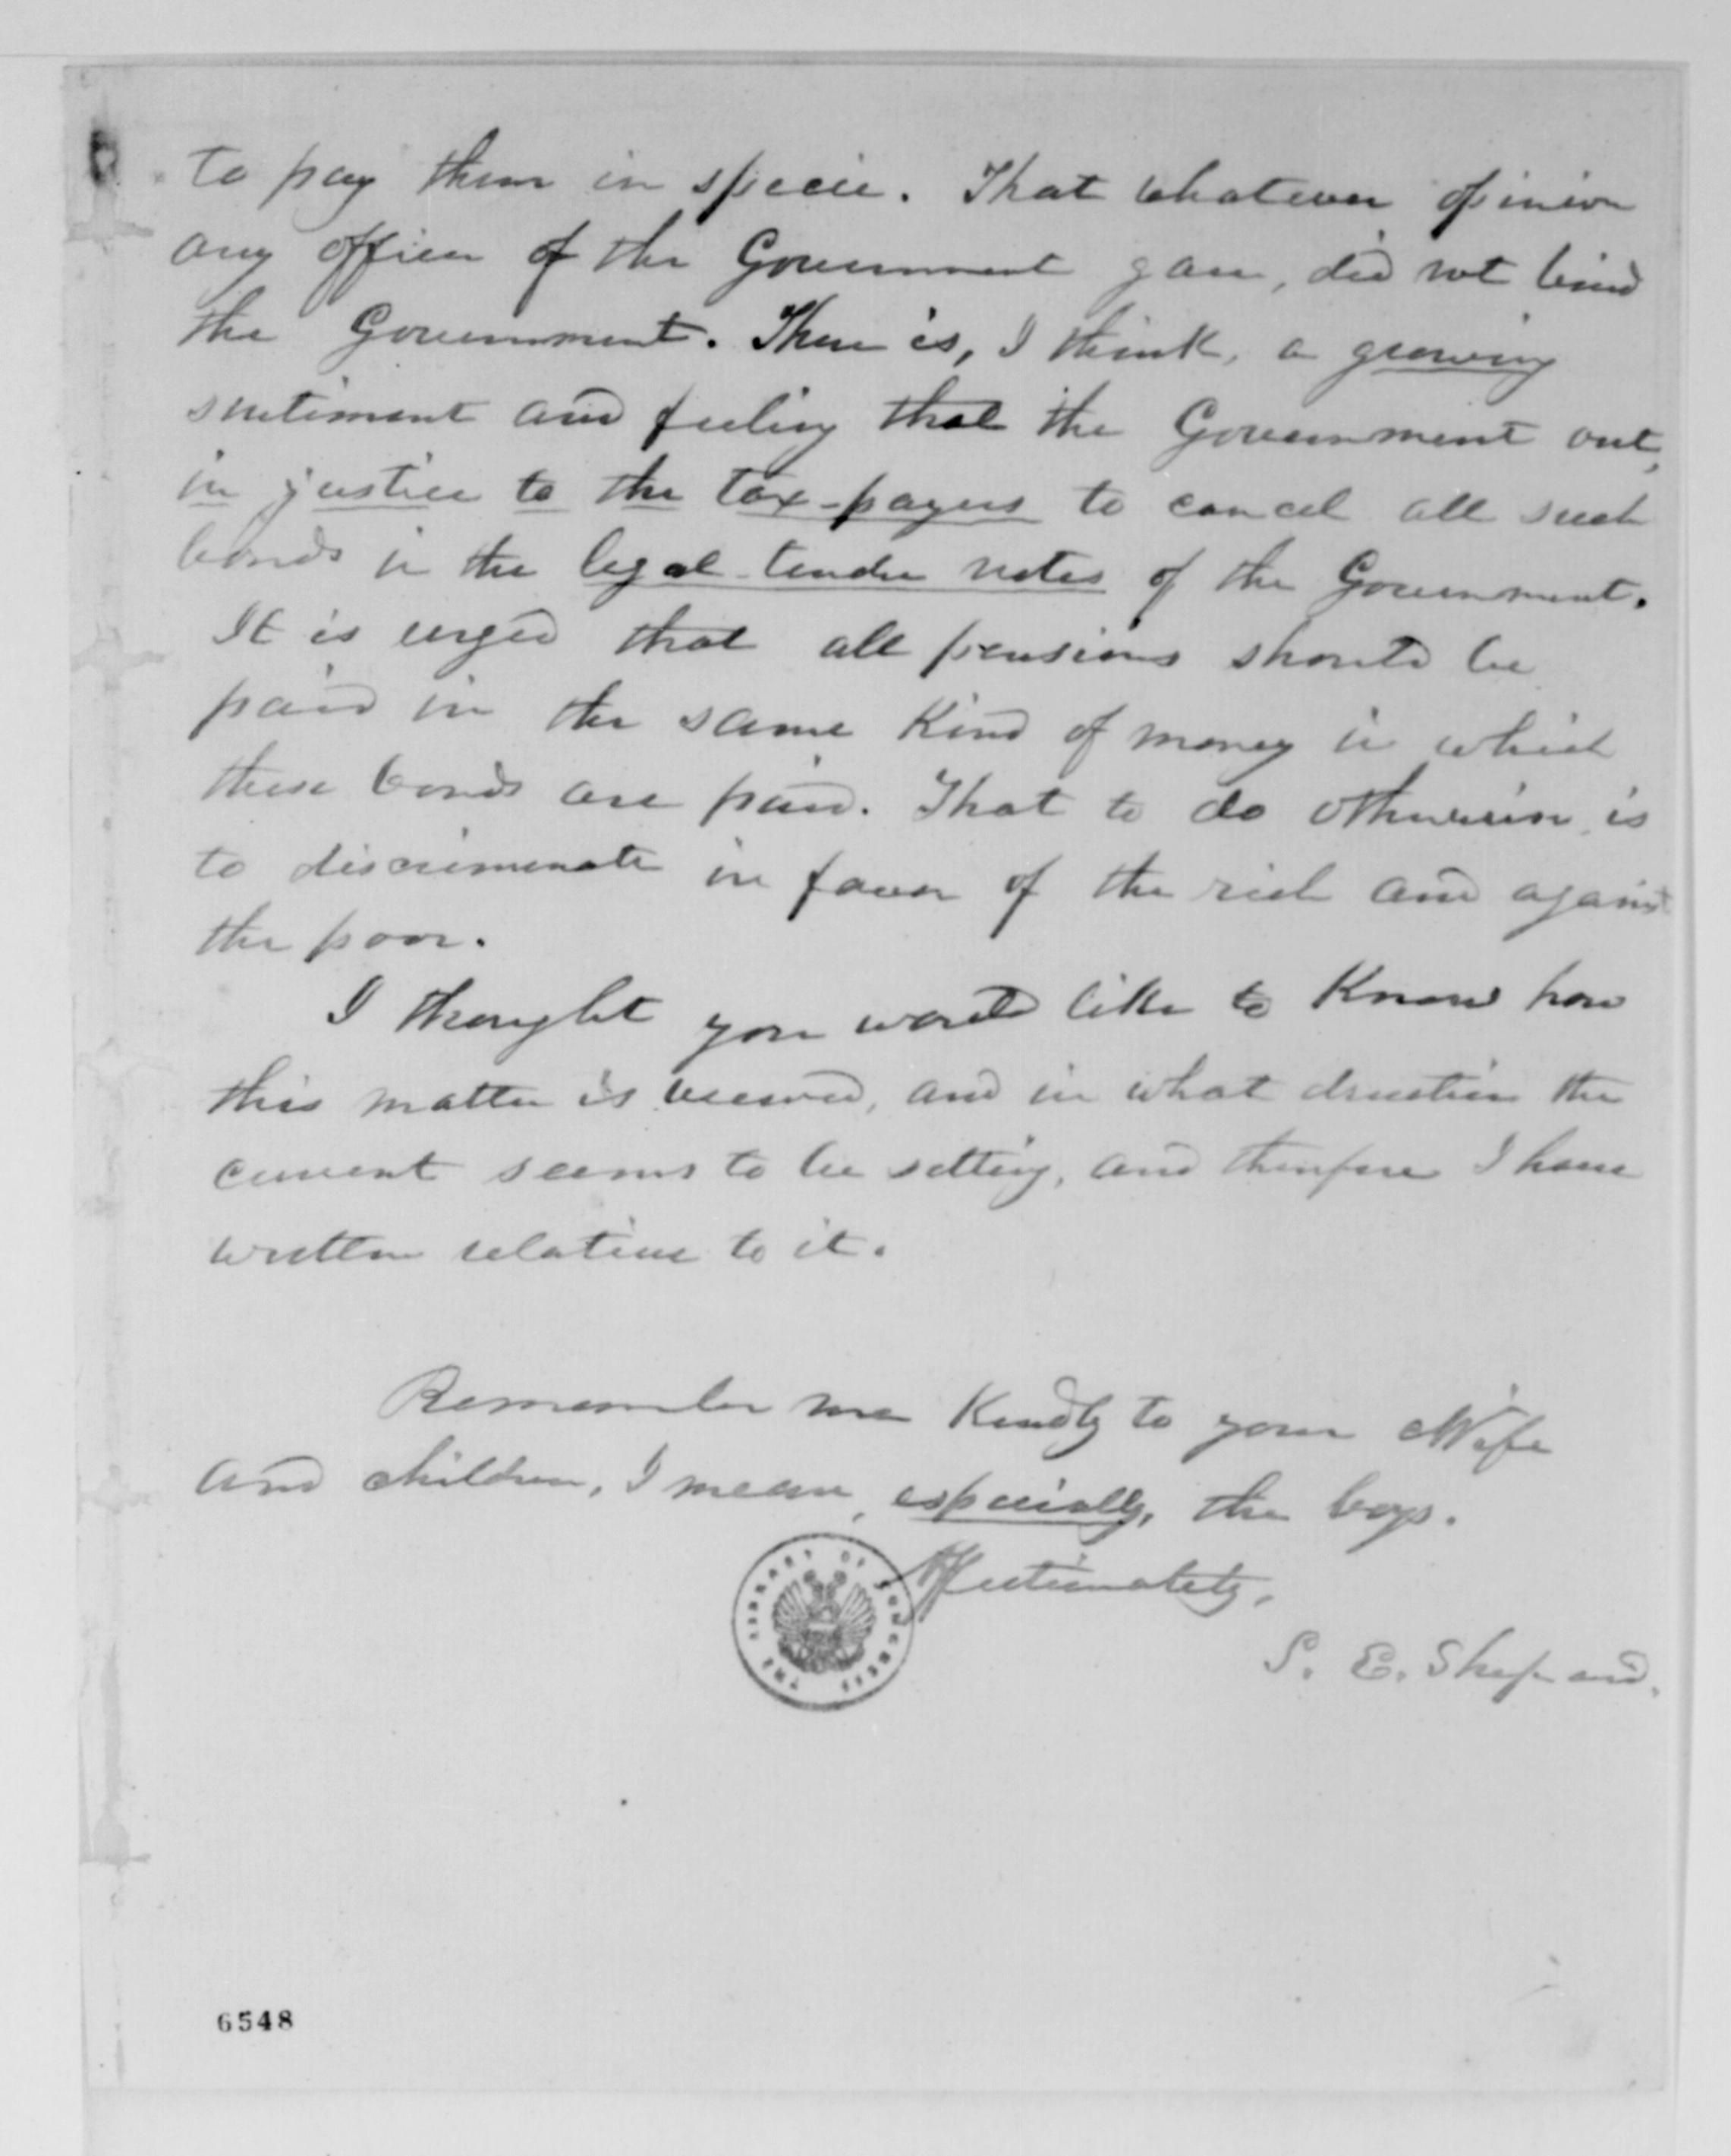 to pay them in specie. That whatever opinion
any officer of the Government gave, did not bind
the Government. There is, I think, a growing
sentiment and feeling that the Government out,
in justice to the tax-payers to cancel all such
bonds in the legal-tender notes of the Government.
It is urged that all pensions should be
paid in the same kind of money in which
these bonds are paid. That to do otherwise is
to discriminate in favor of the rich and against
the poor.
I thought you would like to know how
this matter is viewed, and in what direction the
current seems to be setting, and therefore I have
written relative to it.
Remember me kindly to your Wife
and children, I mean, especially, the boys.
Affectionately,
S. E. Shepard.
THE LIBRARY OF CONGRESS
6548